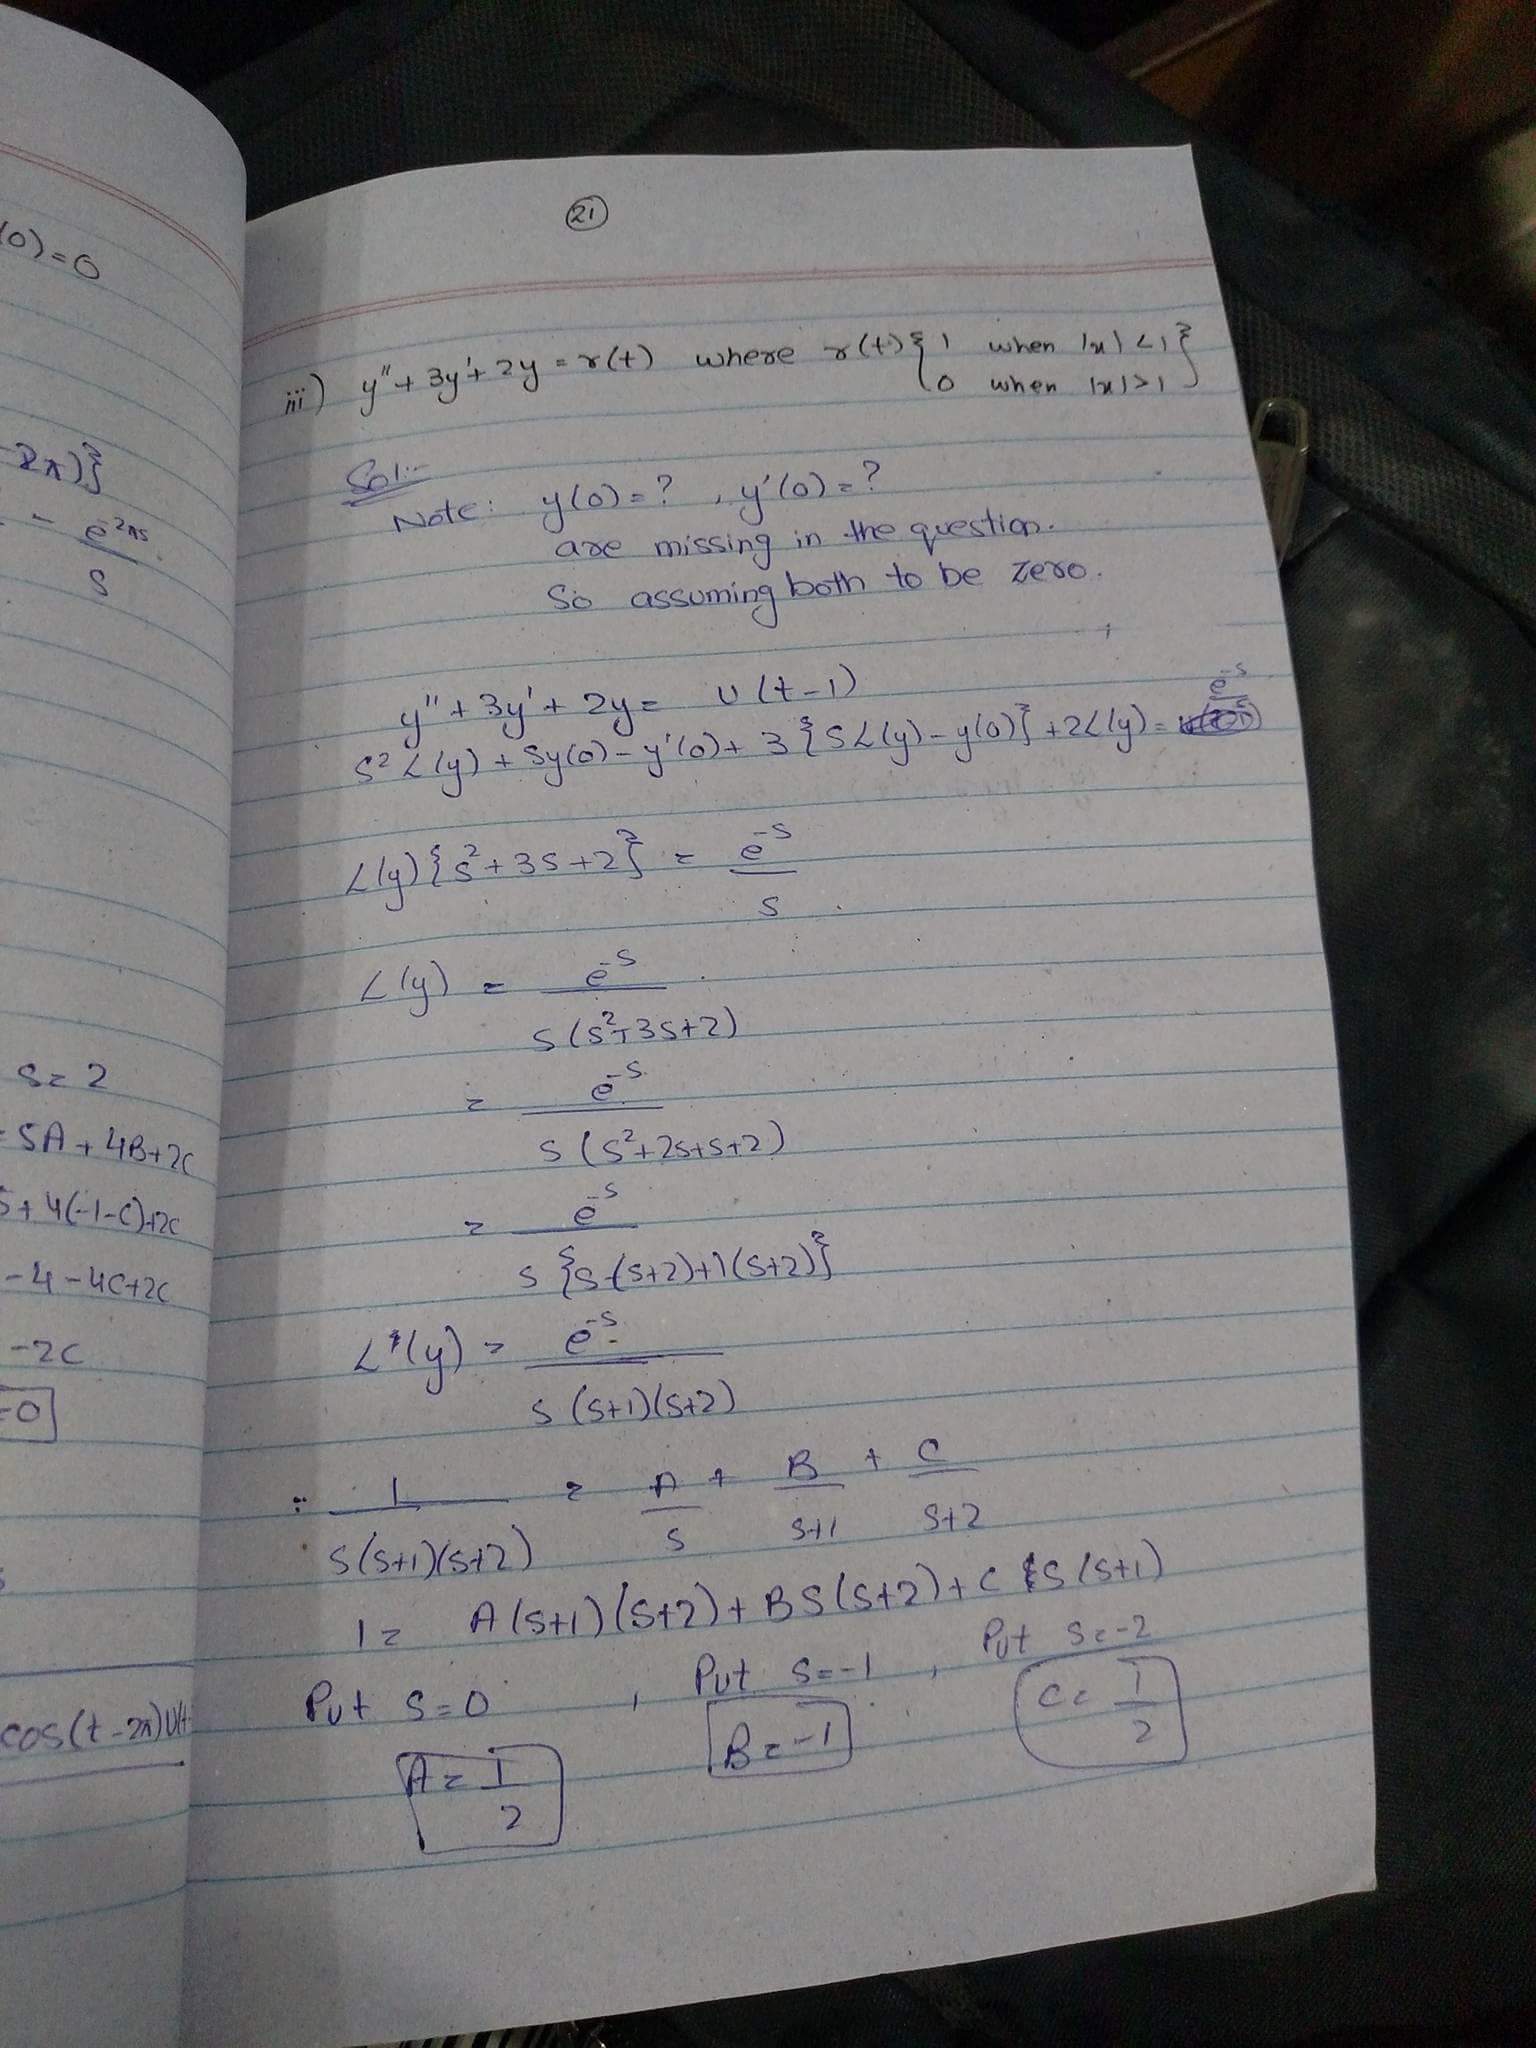 (0)=0
-2π)}
- e^-2πs
s
s=2
=5A+4B+2C
5+4(-1-C)+2C
-4-4C+2C
-2C
=0
cos(t-2π)U(t-
21
iii) y''+3y'+2y=r(t) where r(t){1 when |x|<1}
{0 when |x|>1}
Sol:-
Note: y(0)=? , y'(0)=?
are missing in the question.
So assuming both to be zero.
y''+3y'+2y= U(t-1)
s²L(y)+sy(0)-y'(0)+3{sL(y)-y(0)}+2L(y)= e^-s
L(y){s²+3s+2} = e^-s
s
L(y) = e^-s
s(s²+3s+2)
= e^-s
s(s²+2s+s+2)
= e^-s
s{s(s+2)+1(s+2)}
L(y)= e^-s
s(s+1)(s+2)
: 1 = A + B + C
s(s+1)(s+2) s s+1 s+2
1= A(s+1)(s+2)+BS(s+2)+C S(s+1)
Put s=0 , Put s=-1 , Put s=-2
A=1 B=-1 C=1
2 2